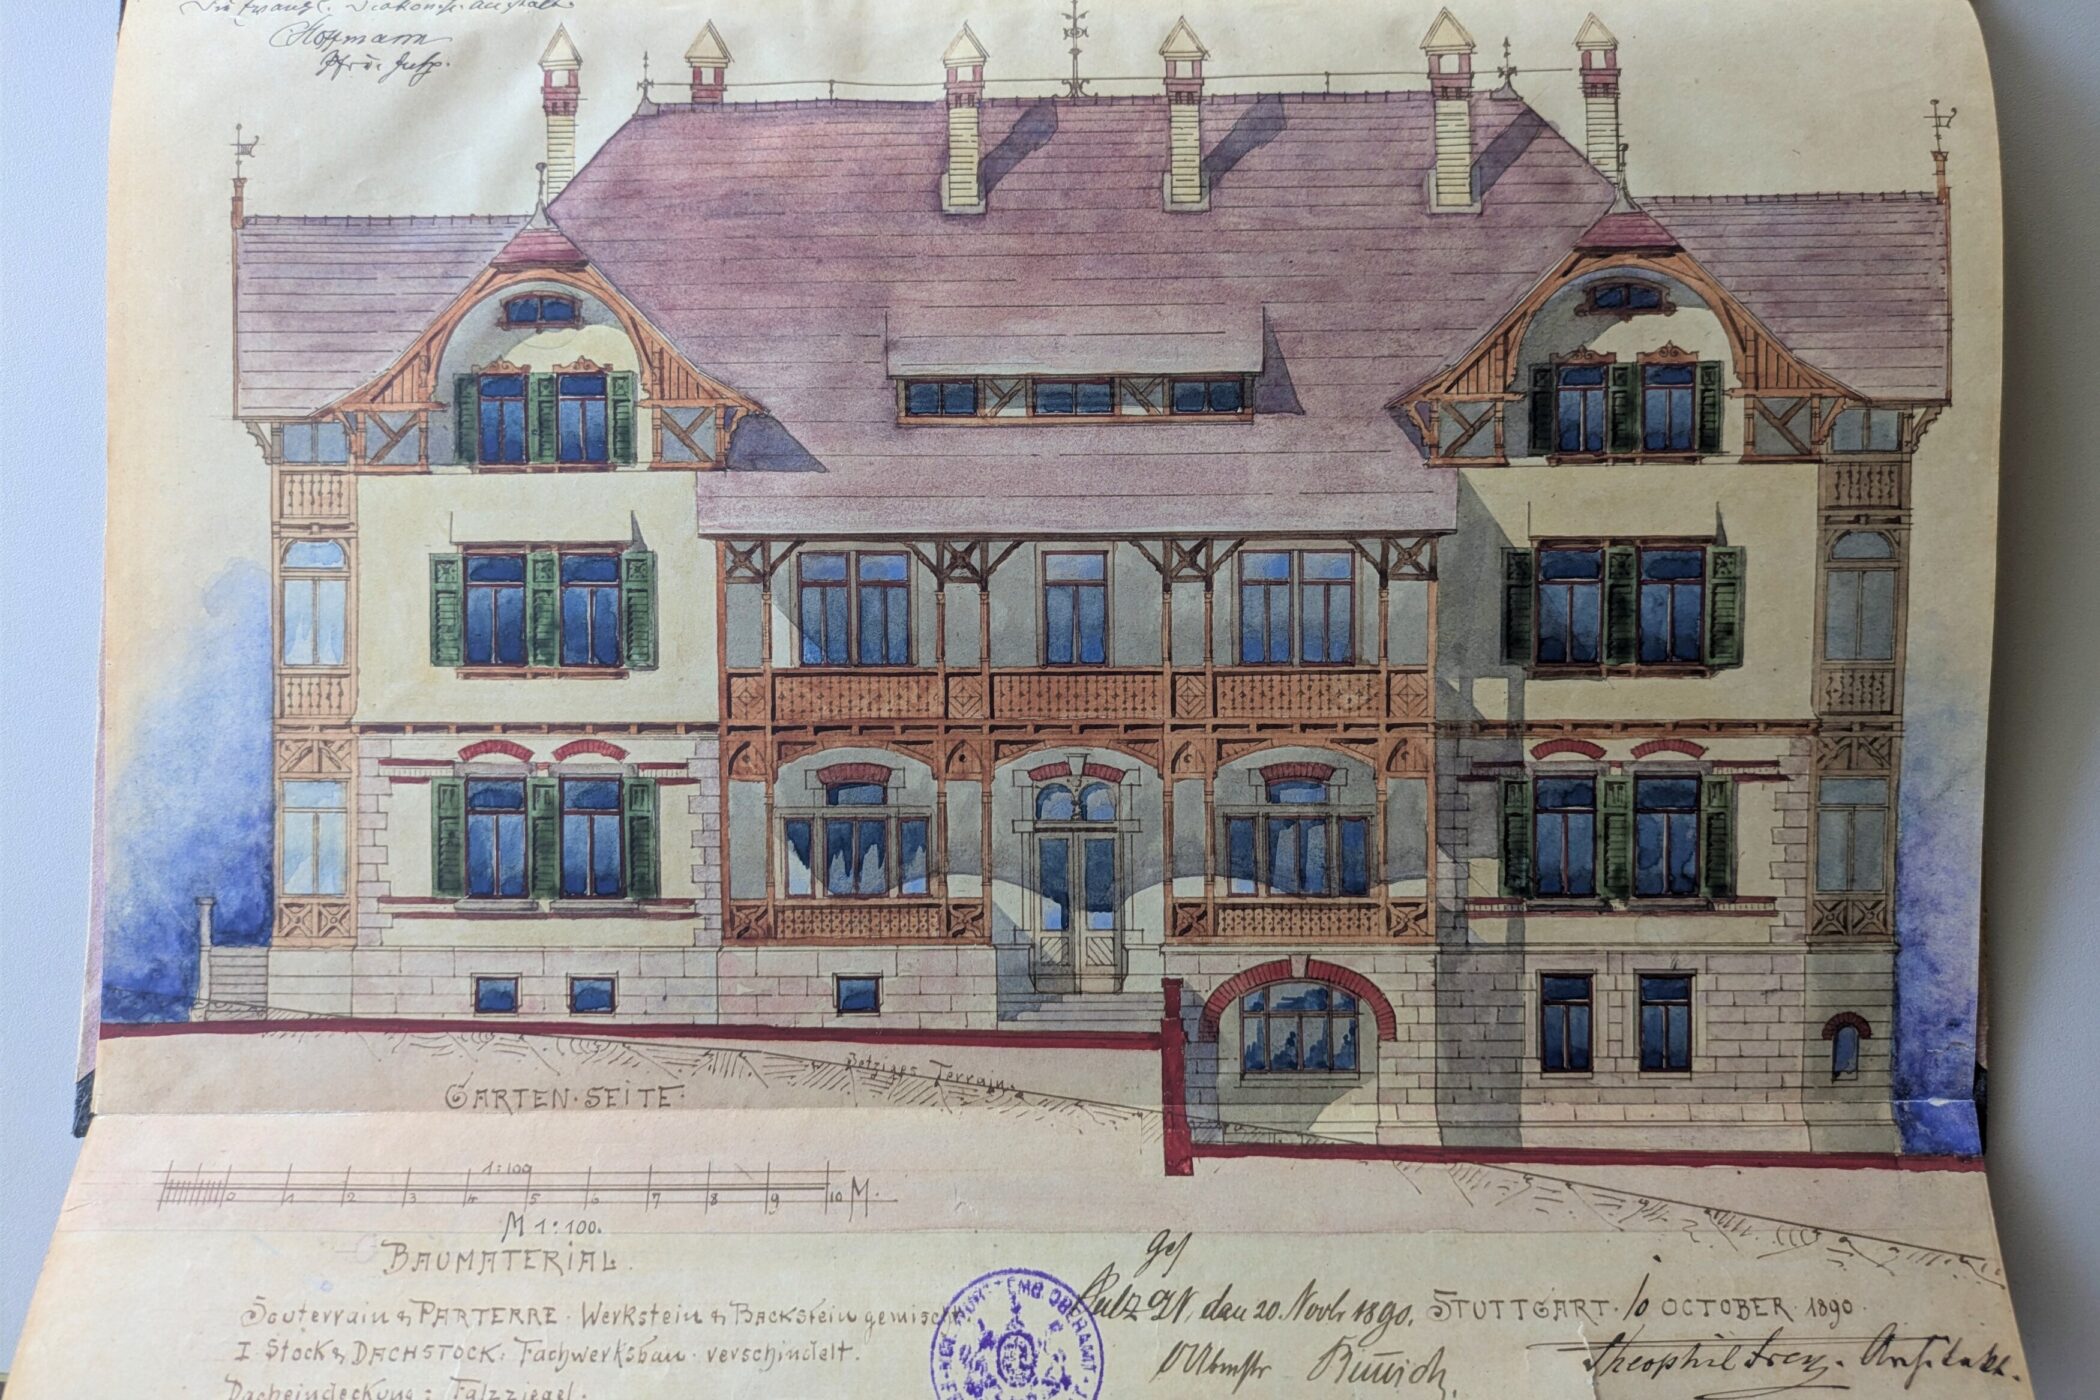 Die Evangl. Diakoniss. anstalt.
Hoffmann
GARTEN·SEITE·
Jetziges Terrain.
1:100
0 1 2 3 4 5 6 7 8 9 10 M.
M 1:100.
BAUMATERIAL.
Souterrain & PARTERRE· Werkstein & BACKstein gemischt
I Stock & DACHSTOCK: Fachwerksbau· verschindelt.
Dacheindeckung: Falzziegel.
Ges
Sulz a/N, den 20. Novb 1890.
STUTTGART·10 OCTOBER·1890·
Theophil Frey· Architekt.
WÜRTTEMB OBERAMT